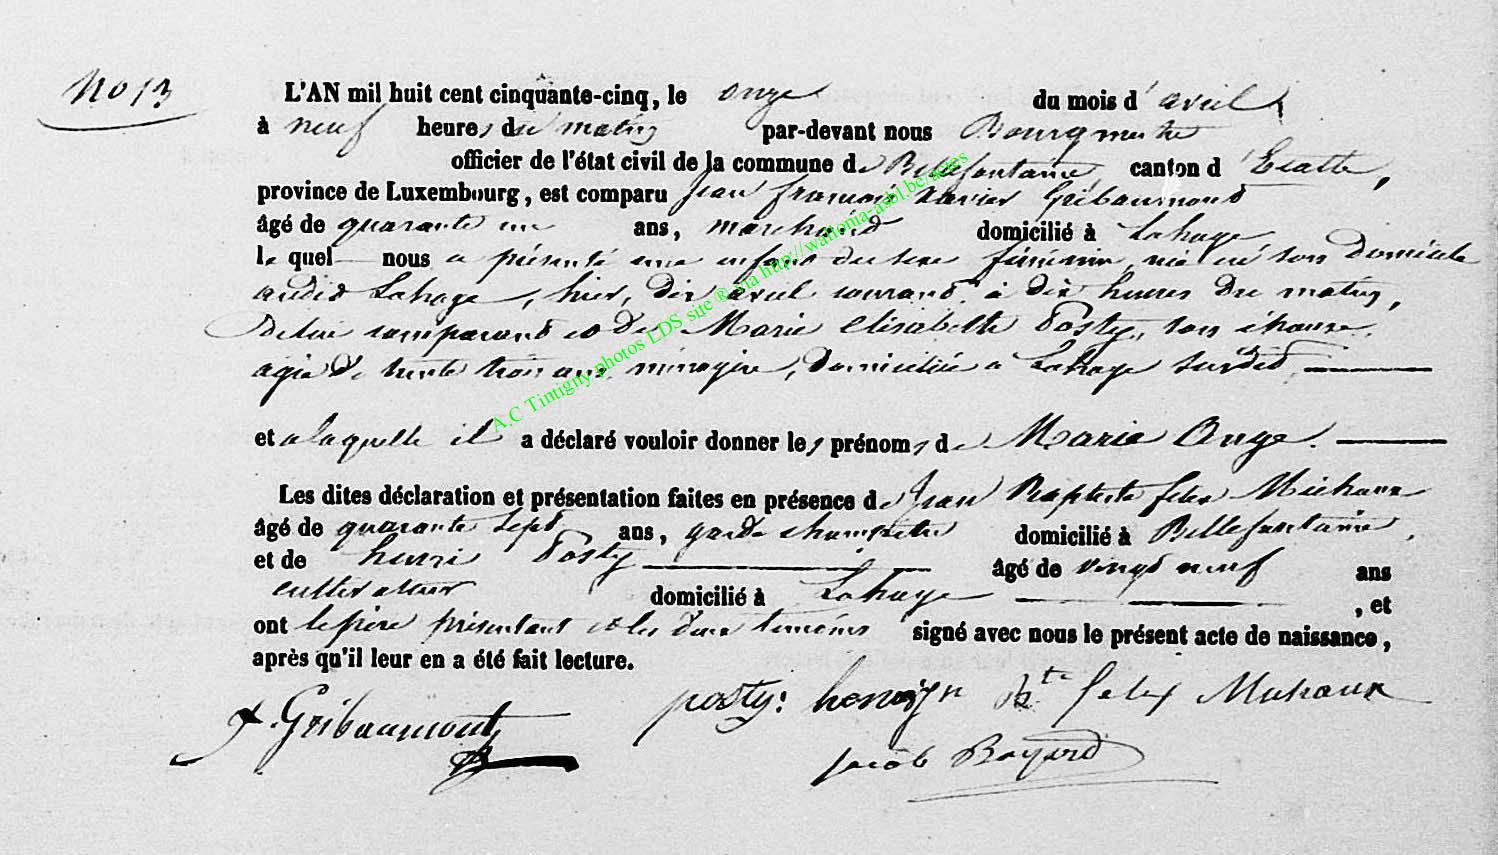 No 13
L'AN mil huit cent cinquante-cinq, le onze du mois d'avril,
à neuf heures du matin par-devant nous Bourgmestre
officier de l'état civil de la commune de Bellefontaine canton d'Etalle,
province de Luxembourg, est comparu Jean françois Xavier Gribaumont
âgé de quarante un ans, marchand domicilié à Lahage
le quel nous a présenté une enfant du sexe féminin, née en son domicile
audit Lahage, hier, dix avril courant à dix heures du matin,
de lui comparant et de Marie Elisabette Posty, son épouse,
agée de trente trois ans, ménagère, domiciliée a Lahage susdit,
et a laquelle il a déclaré vouloir donner les prénoms de Marie Ange.
Les dites déclaration et présentation faites en présence de Jean Baptiste felix Michaux
âgé de quarante sept ans, garde champêtre domicilié à Bellefontaine,
et de henri Posty âgé de vingt neuf ans
cultivateur domicilié à Lahage , et
ont le père présentant et les deux témoins signé avec nous le présent acte de naissance,
après qu'il leur en a été fait lecture.
x. Gribaumont posty: henri jn Bte felix Michaux
jacob Bayard
A.C Tintigny photos LDS sue ® via http://wallonia-asbl.be/actes